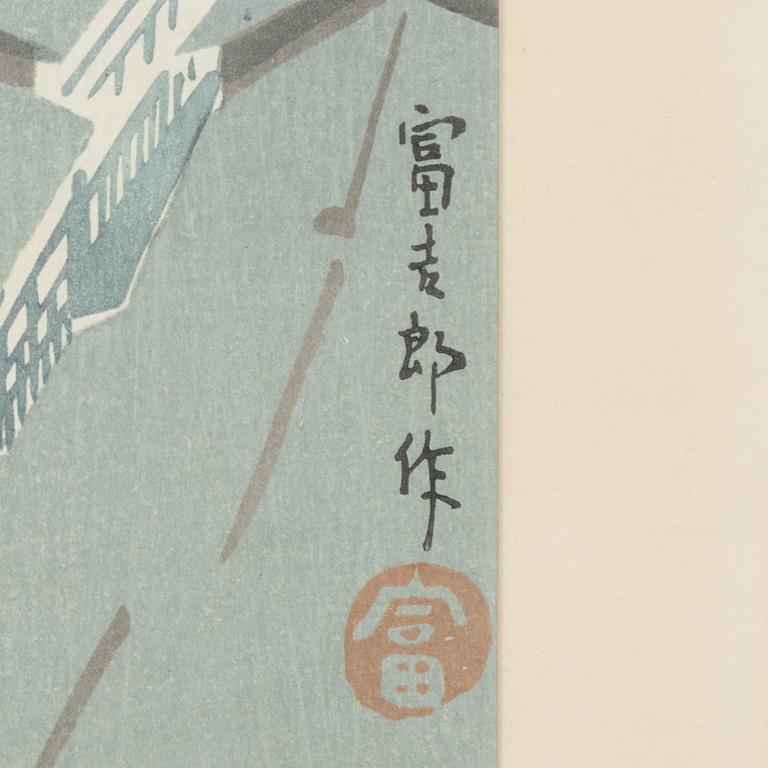 富吉郎作
富